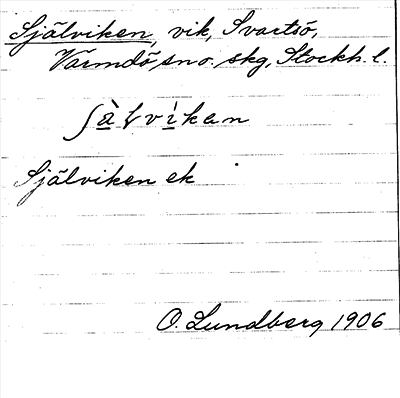 Själviken, vik, Svartsö,
Värmdö sn o. skg, Stockh. l.
ʃàlvìkan
Själviken ek
O. Lundberg 1906